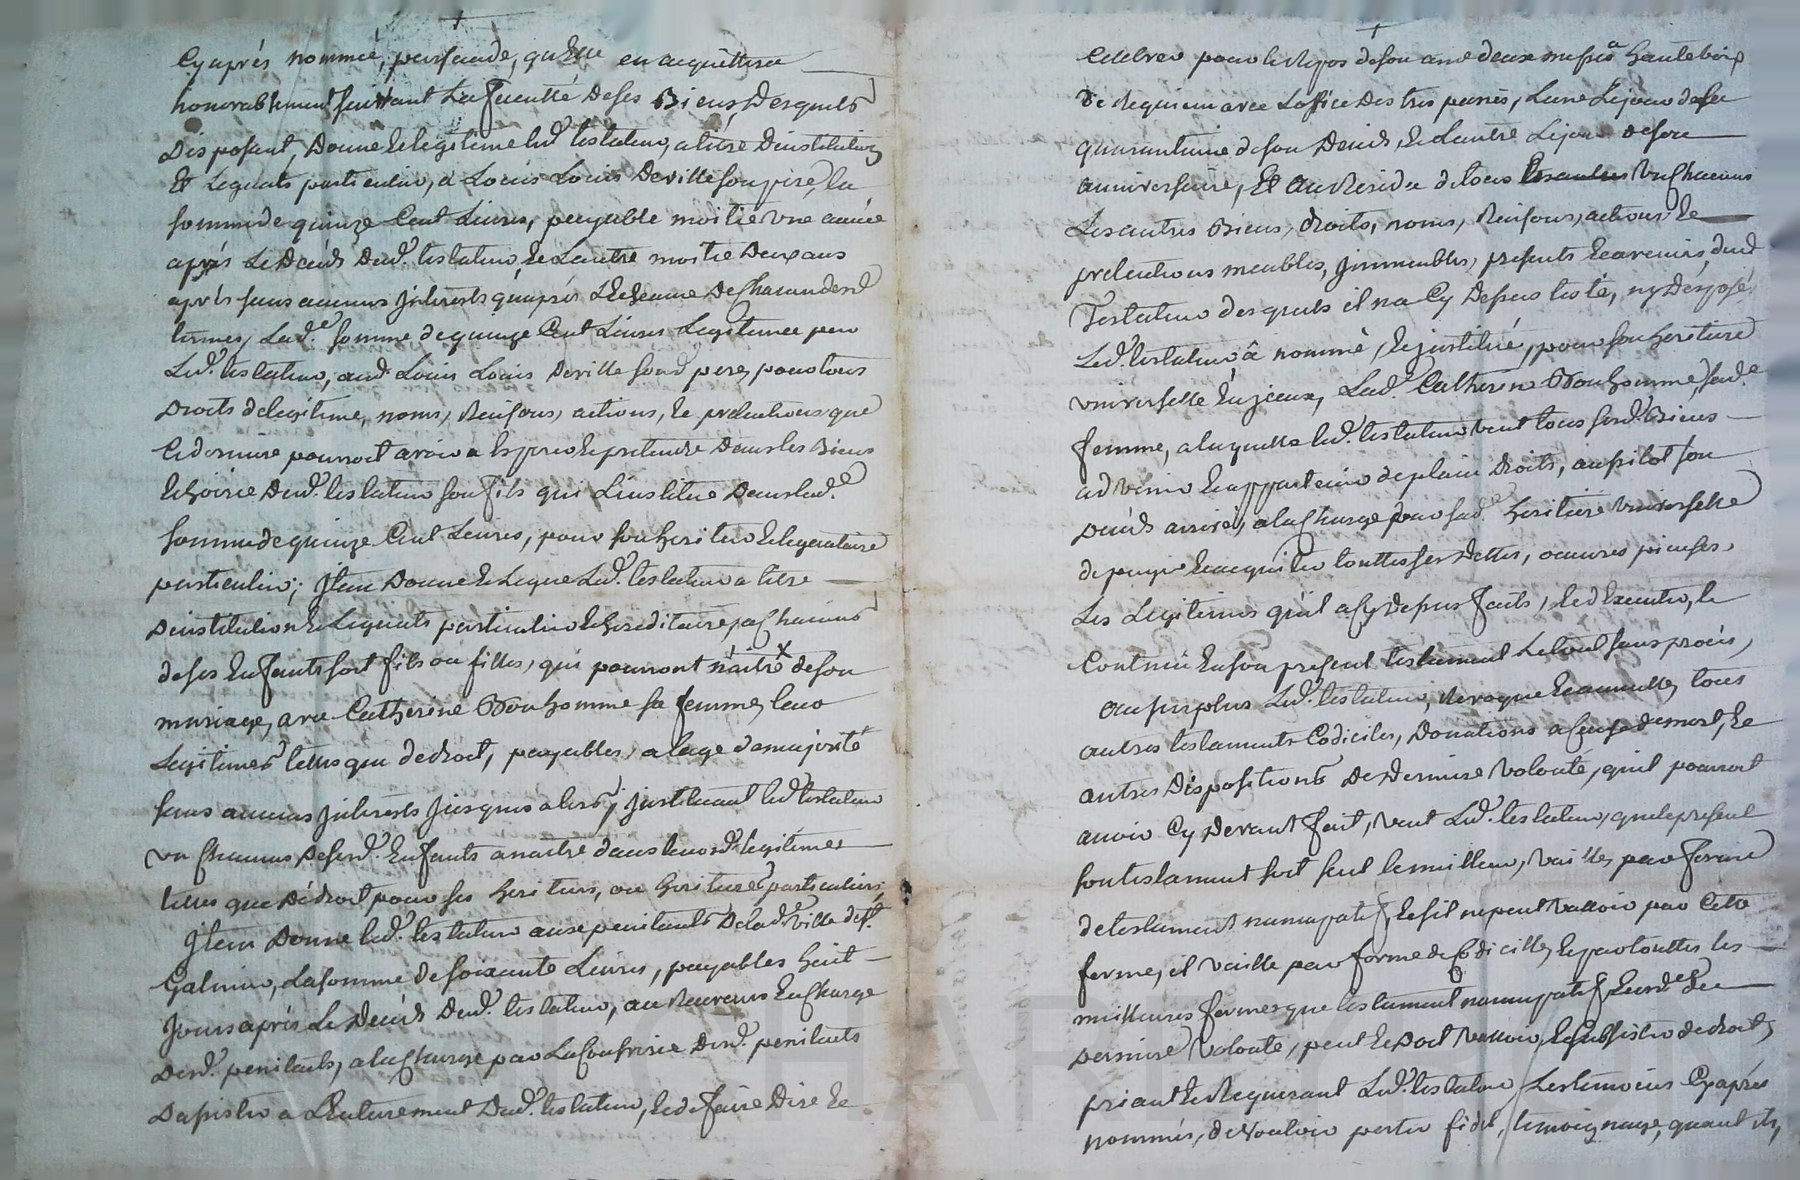 Cy aprés nommeé, persuade, qu'elle en acquittera
honorablement suivant La faculté de ses Biens, Desquels
Disposant, Donne et legitime led. testateur, a titre D'institution
Et Leguats particulier, a Loüis Louis Deville son pere, la
somme de quinze Cent Livres, payable moitie une année
aprés Le Decés Dud. testateur, et L'autre moitie Deux ans
aprés sans aucuns jnterests qu'aprés L'echeance De Chacun desd.
termes, Lad.e somme de quinze Cent Livres Legitimee par
Led. testateur, aud. Louis Louis Deville sond. pere, pour tous
Droits de legitime, noms, Raisons, actions, et pretentions que
Ce dernier pourroit avoir a esperer et pretendre Dans les Biens
et hoirie Dud. testateur son fils qui L'institue Dans lad.e
somme de quinze Cent Livres, pour son heritier et legataire
particulier; Jtem Donne et Legue Led. testateur a titre
D'institution et Leguats particulier et hereditaire, a Chacuns
de ses Enfants soit fils ou filles, qui pourront naitre x de son
mariage, avec Catherine Bonhomme sa femme, leur
Legitimes telles que de droit, payables, a l'age de majorité
sans aucuns jnterests jusques alors, jnstituant led. testateur
un Chacuns De sesd. Enfants a naitre dans leursd. legitimes
telles que De droit pour ses heritiers, ou heritieres particuliers,
Jtem Donne led. testateur aux penitants De lad.e ville de St.
Galmier, La somme de soixante Livres, payables huit
Jours aprés Le Decés Dud. testateur, au Receveur En Charge
Desd. penitants, a la Charge par La Confrerie Desd. penitants
D'assister a L'enterement Dud. testateur, et de faire Dire et
Celebrer pour le Repos de son ame deux messes a haute voix
De Requiem avec L'office Des tres passés, L'une Le jour de sa
quarantaine de son Decés, et L'autre Le jour de son
anniversaire, Et Au Residu de tous un Chacuns
Les autres Biens, droits, noms, Raisons, actions et
pretentions meubles, jmmeubles, presents et avenirs, dud.
Testateur desquels il n'a Cy Depuis testé, ny Disposé,
Led. testateur â nommé, et jnstitué, pour son heritiere
universelle Lad. Catherine Bonhomme, sad.e
femme, a laquelle led. testateur veut tous sesd. Biens
advenir et appartenir de plain droits, aussitot son
Decés arrivé, a la Charge par sad.e heritiere universelle
de payer et acquitter touttes ses dettes, oeuvres pieuses,
Les Legitimes qu'il a Cy depus faits, et d'Executer, le
Contenu En son present testament Le tout sans procés,
Au surplus Led. testateur, Revoque et annulle, tous
autres testaments Codiciles, Donations a Cause de mort, et
autres Dispositions De Derniere volonté, qu'il pourroit
avoir Cy Devant fait, veut Led. testateur, que le present
son testament soit seul le meilleur, vaille, par forme
de testament nuncupatif, et s'il ne peut valloir par Cette
forme, il vaille par forme de Codicille, et par touttes les
meilleures formes que testament nuncupatif et ord.e de
Derniere volonté, peut et Doit valloir, et subsister de droit,
priant et Requerant Led. testateur, Les temoins Cy aprés
nommés, de vouloir porter fidel, temoignage, quant ils,